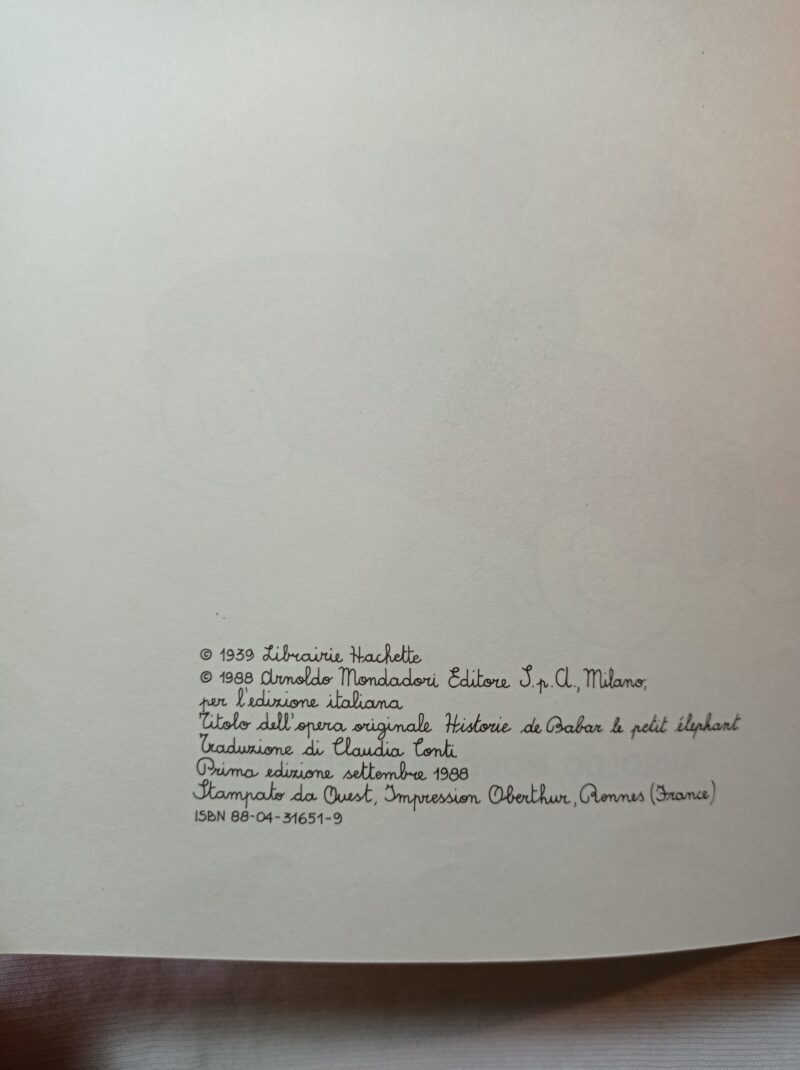 © 1939 Librairie Hachette
© 1988 Arnoldo Mondadori Editore S.p.A., Milano,
per l'edizione italiana
Titolo dell'opera originale Historie de Babar le petit élephant
Traduzione di Claudia Conti
Prima edizione settembre 1988
Stampato da Ouest, Impression Oberthur, Rennes (France)
ISBN 88-04-31651-9